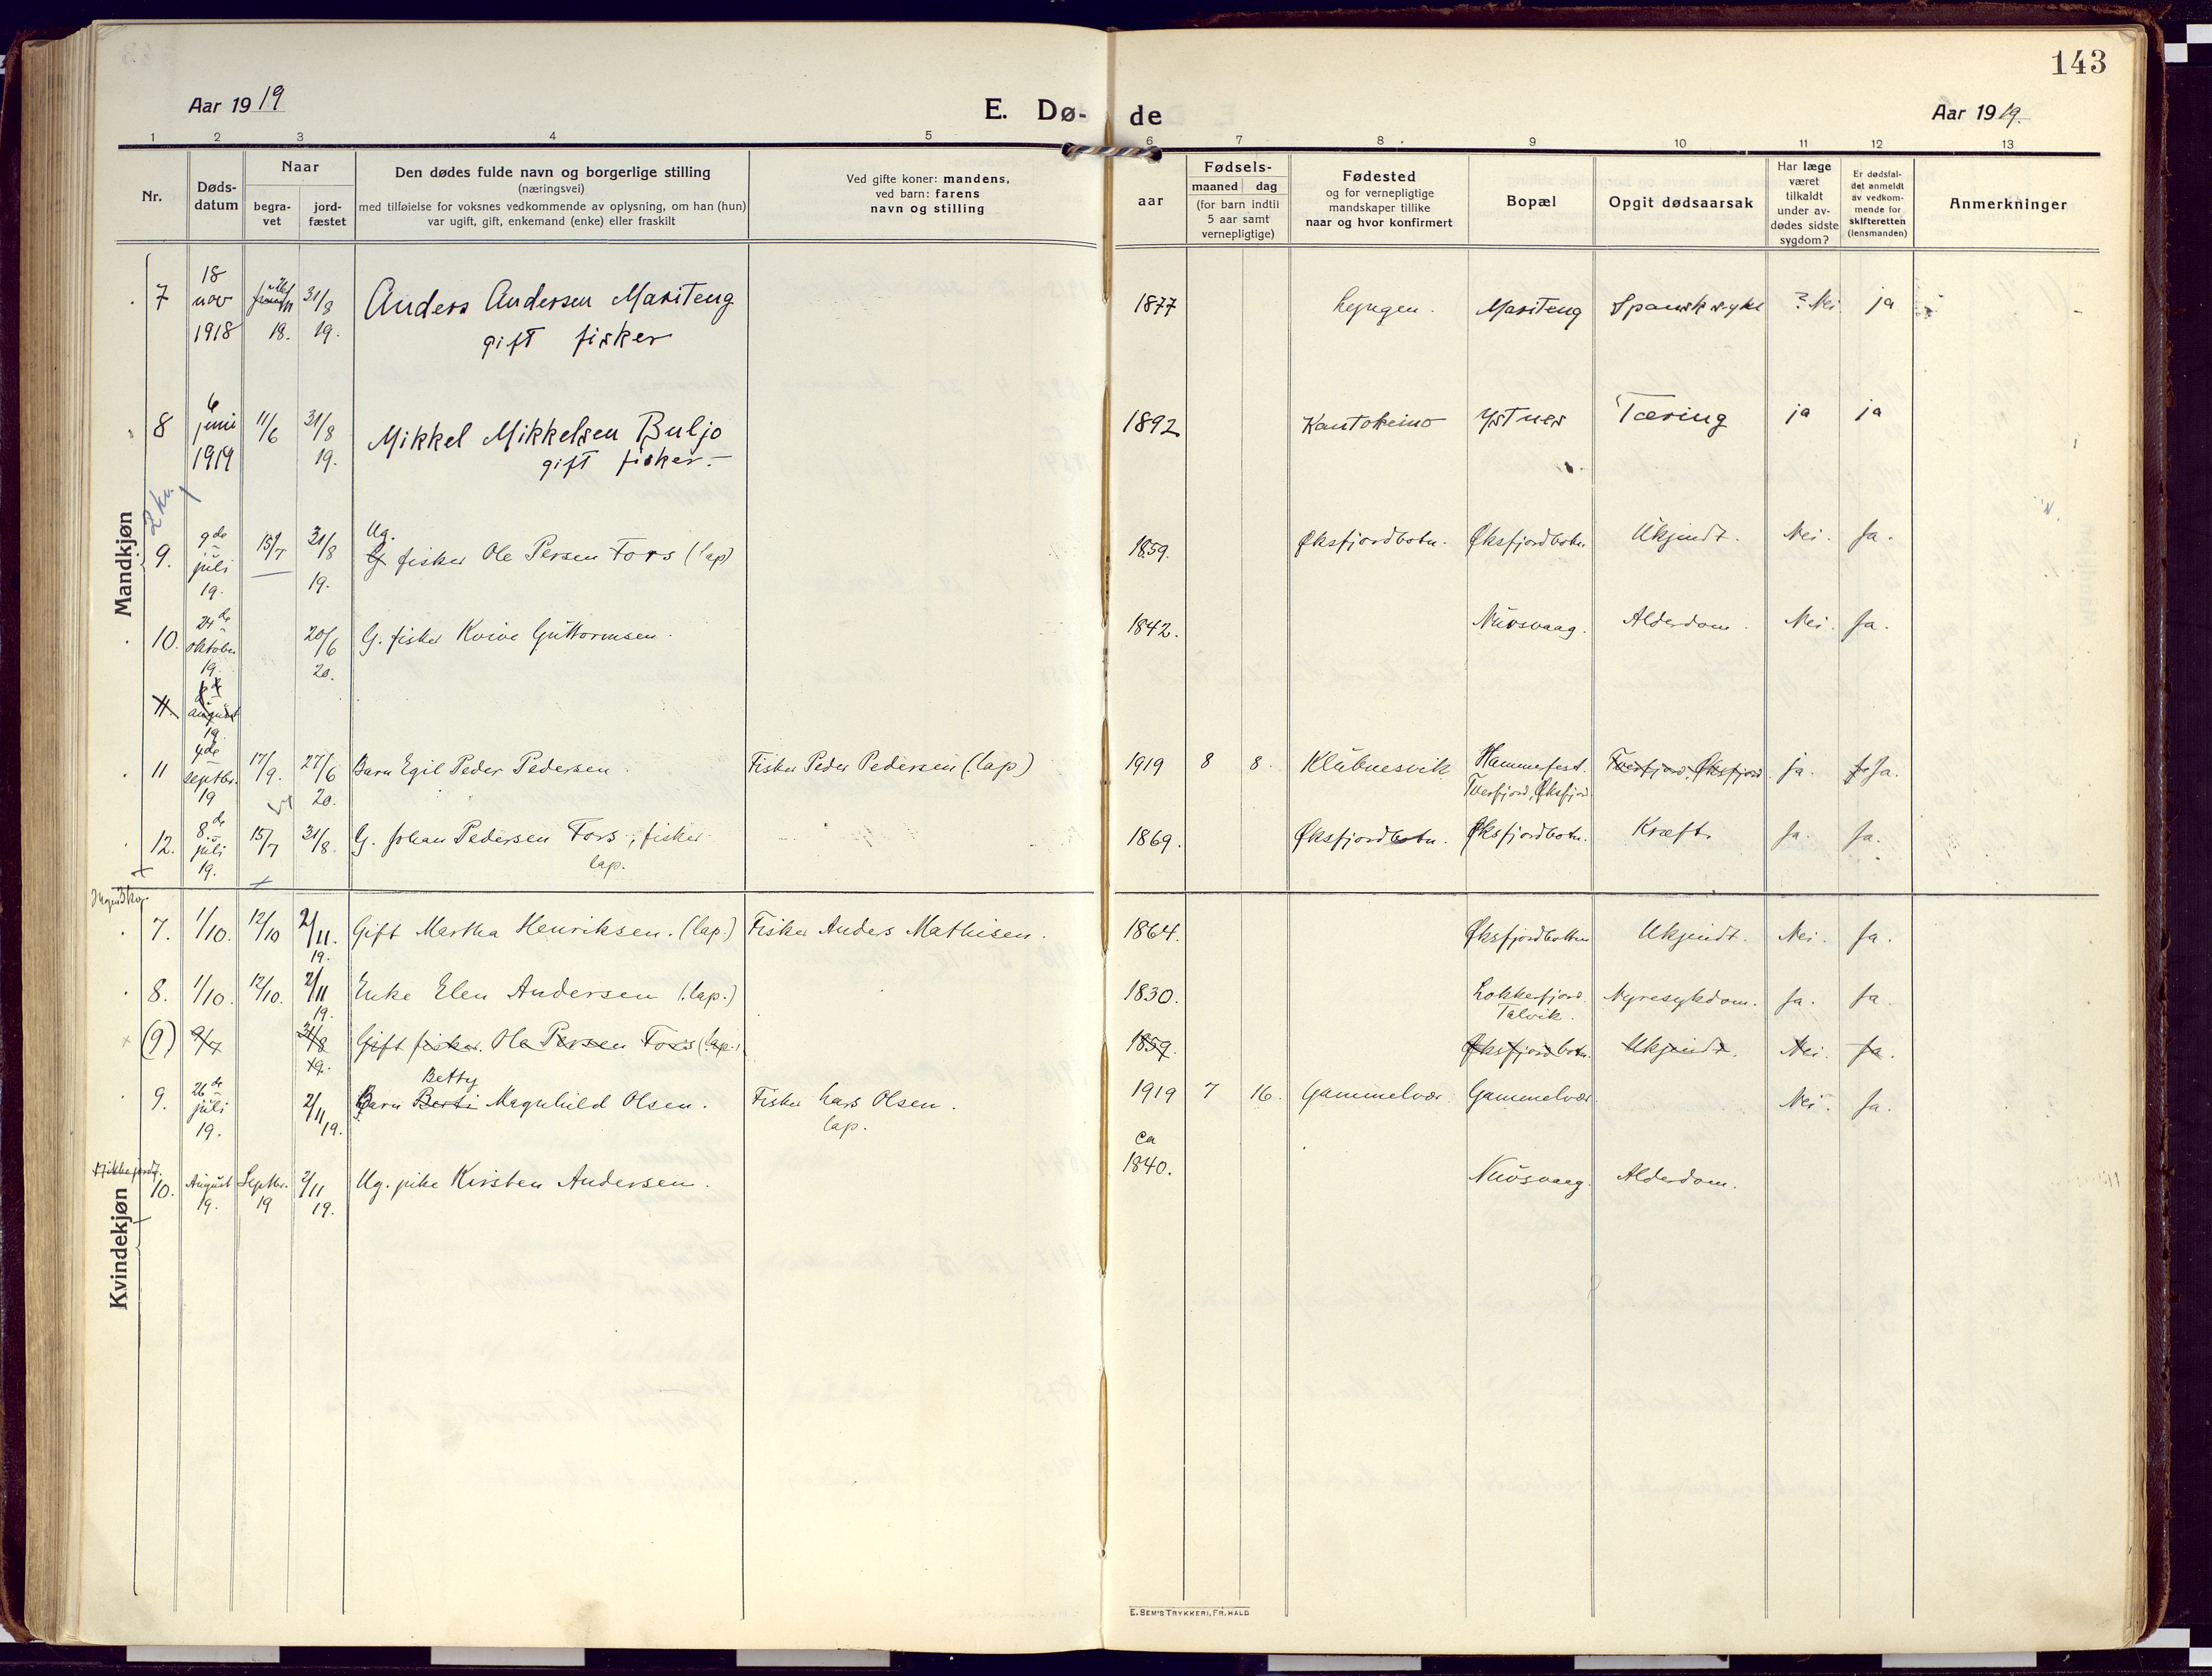 143
Aar 1919
E. Dø-
de
Aar 1919.
1 2 3 4 5 6 7 8 9 10 11 12 13
Nr.
Døds-
datum
Naar
begra-
vet
jord-
fæstet
Den dødes fulde navn og borgerlige stilling
(næringsvei)
med tilføielse for voksnes vedkommende av oplysning, om han (hun)
var ugift, gift, enkemand (enke) eller fraskilt
Ved gifte koner: mandens,
ved barn: farens
navn og stilling
aar
Fødsels-
maaned dag
(for barn indtil
5 aar samt
vernepligtige)
Fødested
og for vernepligtige
mandskaper tillike
naar og hvor konfirmert
Bopæl
Opgit dødsaarsak
Har læge
været
tilkaldt
under av-
dødes sidste
sygdom?
Er dødsfal-
det anmeldt
av vedkom-
mende for
skifteretten
(lensmanden)
Anmerkninger
Mandkjøn
7 18 nov 1918 18. 31/8 19. Anders Andersen Mariteng
gift fisker
1877 Lyngen. Mariteng Spansk syke ? Nei ja
8 6 juni 1919 11/6 31/8 19. Mikkel Mikkelsen Buljo
gift fisker.-
1892 Kautokeino Ystnes Tæring ja ja
2 kv.
9. 9de juli 19. 15/7 31/8 19. Ug.
G fisker Ole Persen Fors (lap)
1859. Øksfjordbotn. Øksfjordbotn Ukjendt. Nei. Ja.
10. 24de oktober 19. 20/6 20. G. fisker Kvive Guttormsen.
1842. Nuvsvaag. Alderdom. Nei. Ja.
11. august 19.
11 4de septbr. 19 17/9. 27/6 20. Barn Egil Peder Pedersen. Fisker Peder Pedersen (lap)
1919 8 8. Klubnesvik Hammerfest. Tverfjord, Øksfjord ja. Ja.
Tverfjord, Øksfjord
12. 8de juli 19. 15/7 31/8. G. Johan Pedersen Fors, fisker
lap.
1869. Øksfjordbotn. Øksfjordbotn. Kræft. Ja. Ja.
Kvindekjøn
7. 1/10. 12/10 2/11. 19. Gift Martha Henriksen. (lap.) Fisker Andes Mathisen.
1864. Øksfjordbotten Ukjendt. Nei. Ja.
8. 1/10. 12/10. 2/11 19. Enke Elen Andersen (lap.)
1830. Lokkefjord. Talvik. Nyresykdom. Ja. Ja.
(9) 9/7 31/8 19. Gift fisker Ole Persen Fors (lap.)
1859. Øksfjordbotn. Ukjendt. Nei. Ja.
9. 26de juli 19. 2/11 19. Betty
Barn Berti Magnhild Olsen. Fisker Lars Olsen.
lap.
1919 7 16. Gammelvær. Gammelvær. Nei. Ja.
10. August 19. Septbr. 19 2/11 19. Ug. pike Kirsten Andersen.
ca
1840. Nuvsvaag. Alderdom.
E. BEM'S TRYKKERI, FR. HALD